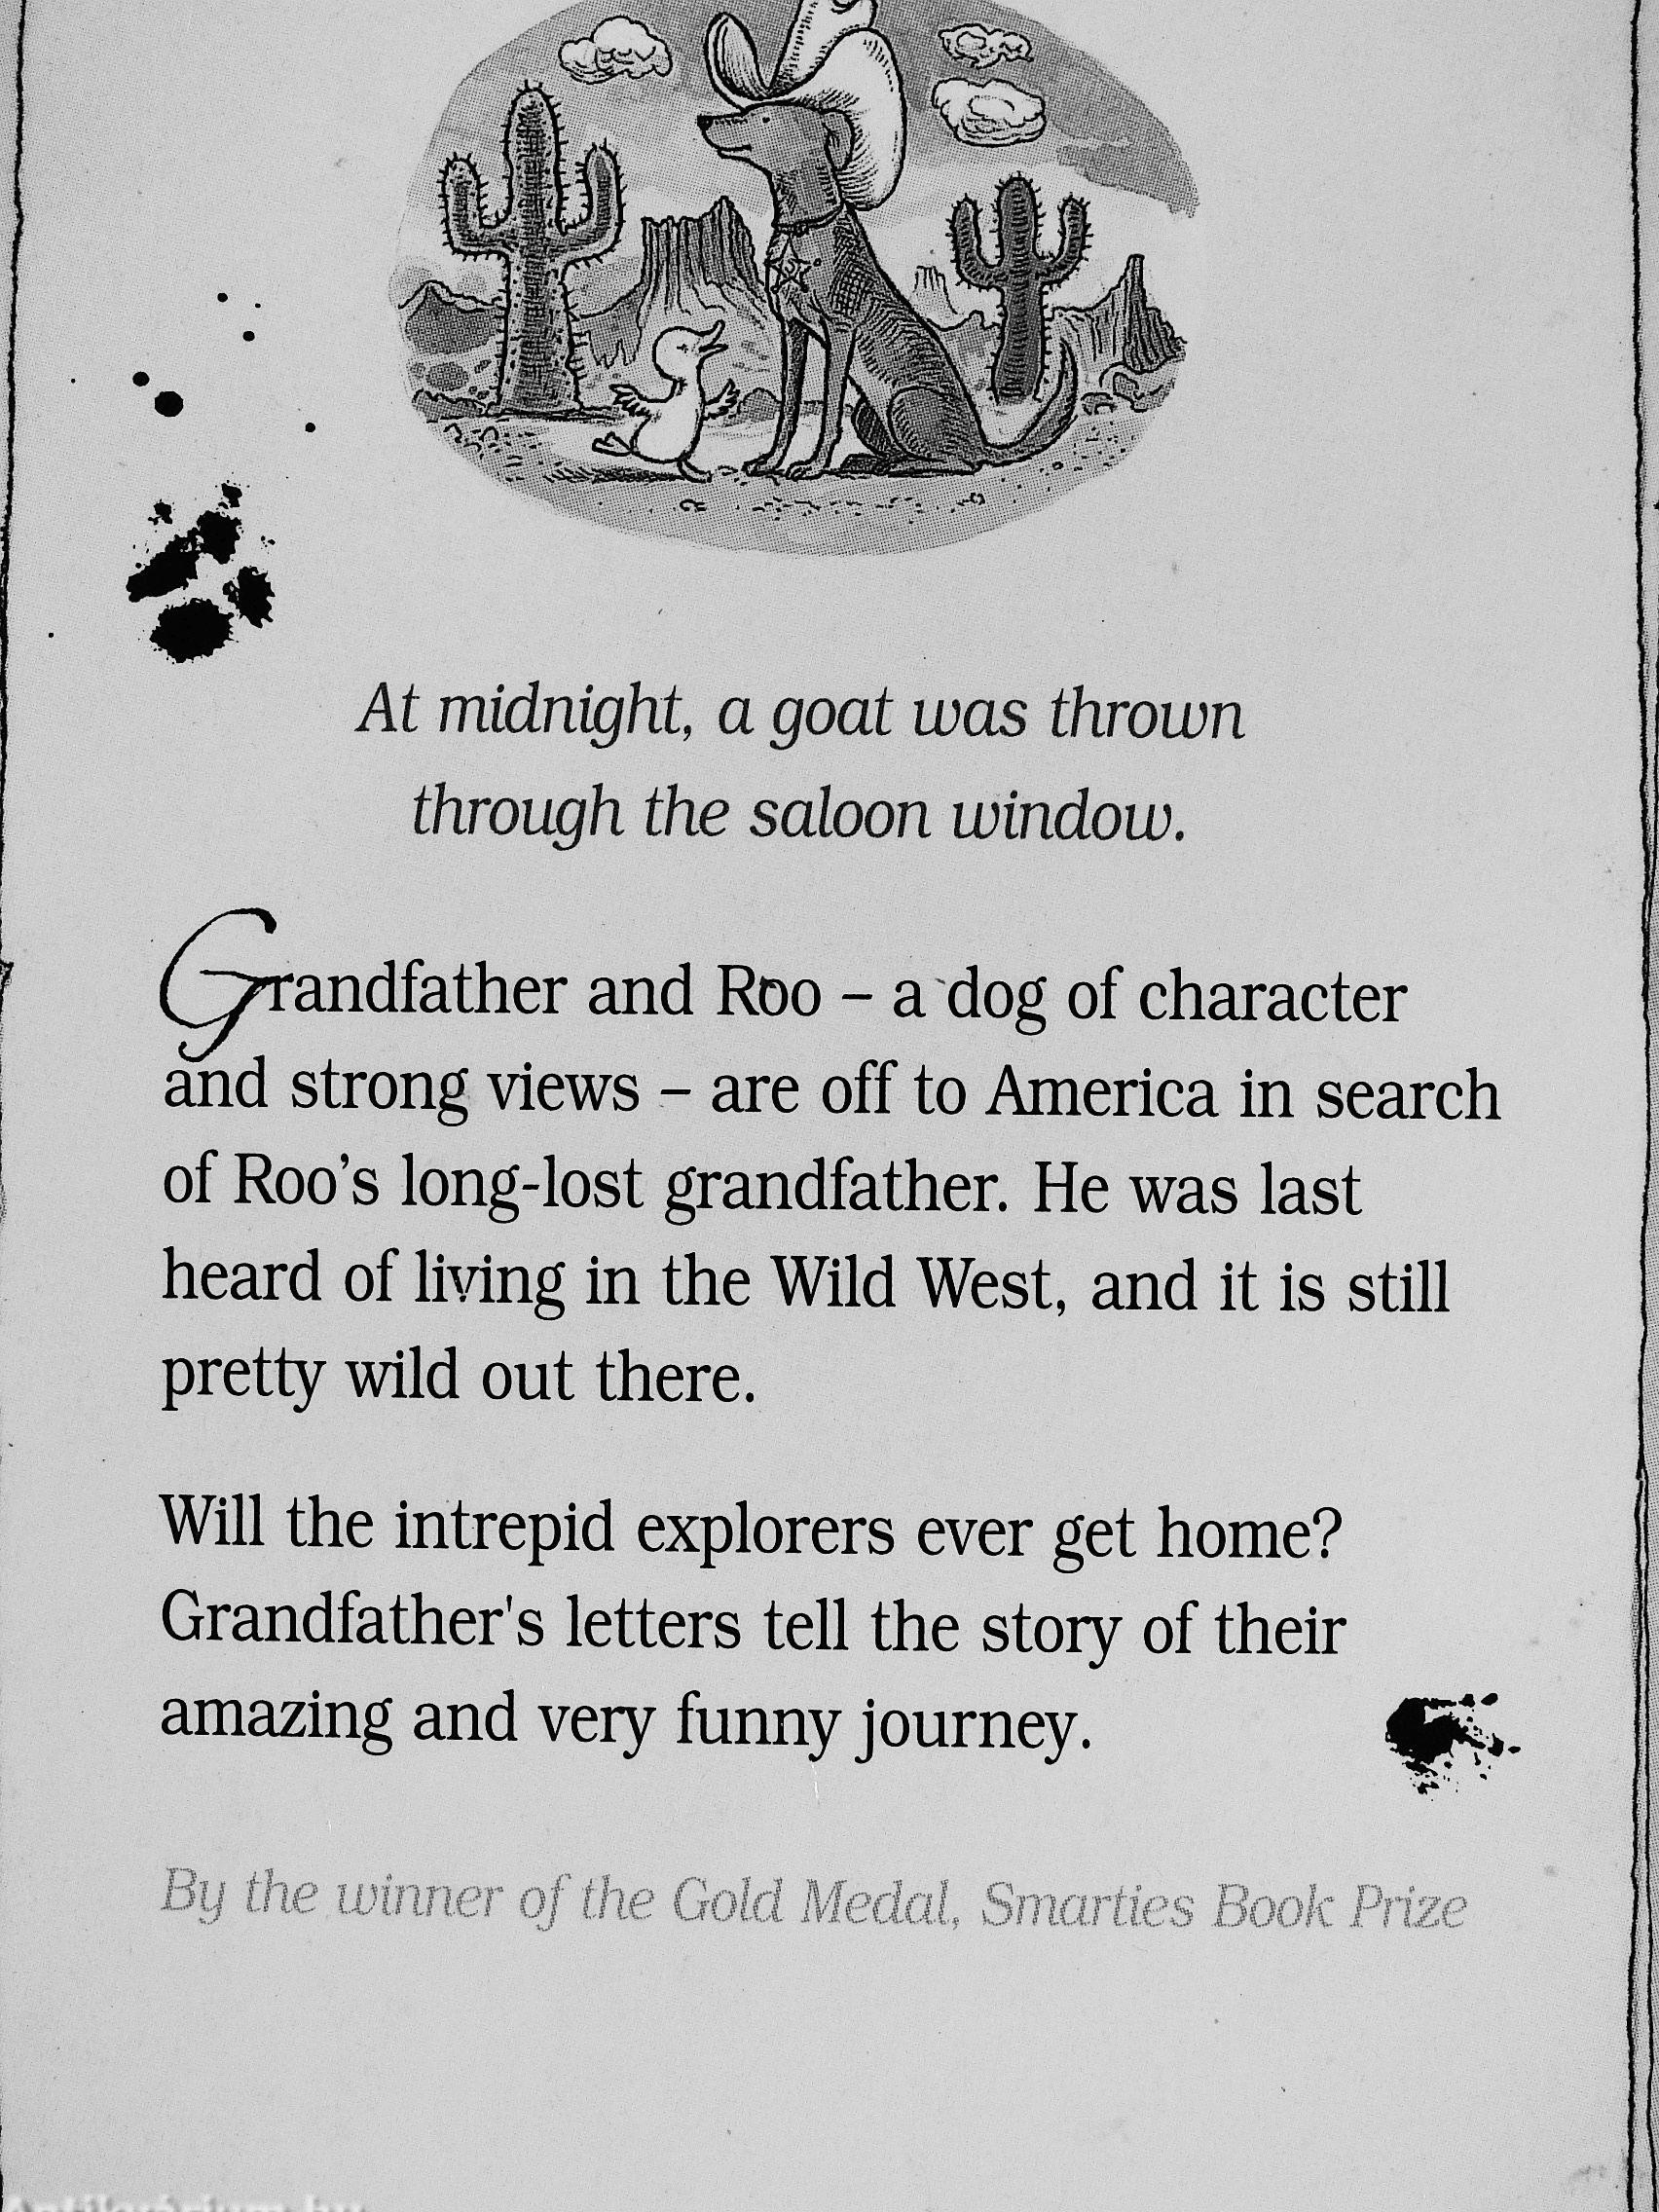 At midnight, a goat was thrown
through the saloon window.
Grandfather and Roo – a dog of character
and strong views – are off to America in search
of Roo’s long-lost grandfather. He was last
heard of living in the Wild West, and it is still
pretty wild out there.
Will the intrepid explorers ever get home?
Grandfather's letters tell the story of their
amazing and very funny journey.
By the winner of the Gold Medal, Smarties Book Prize